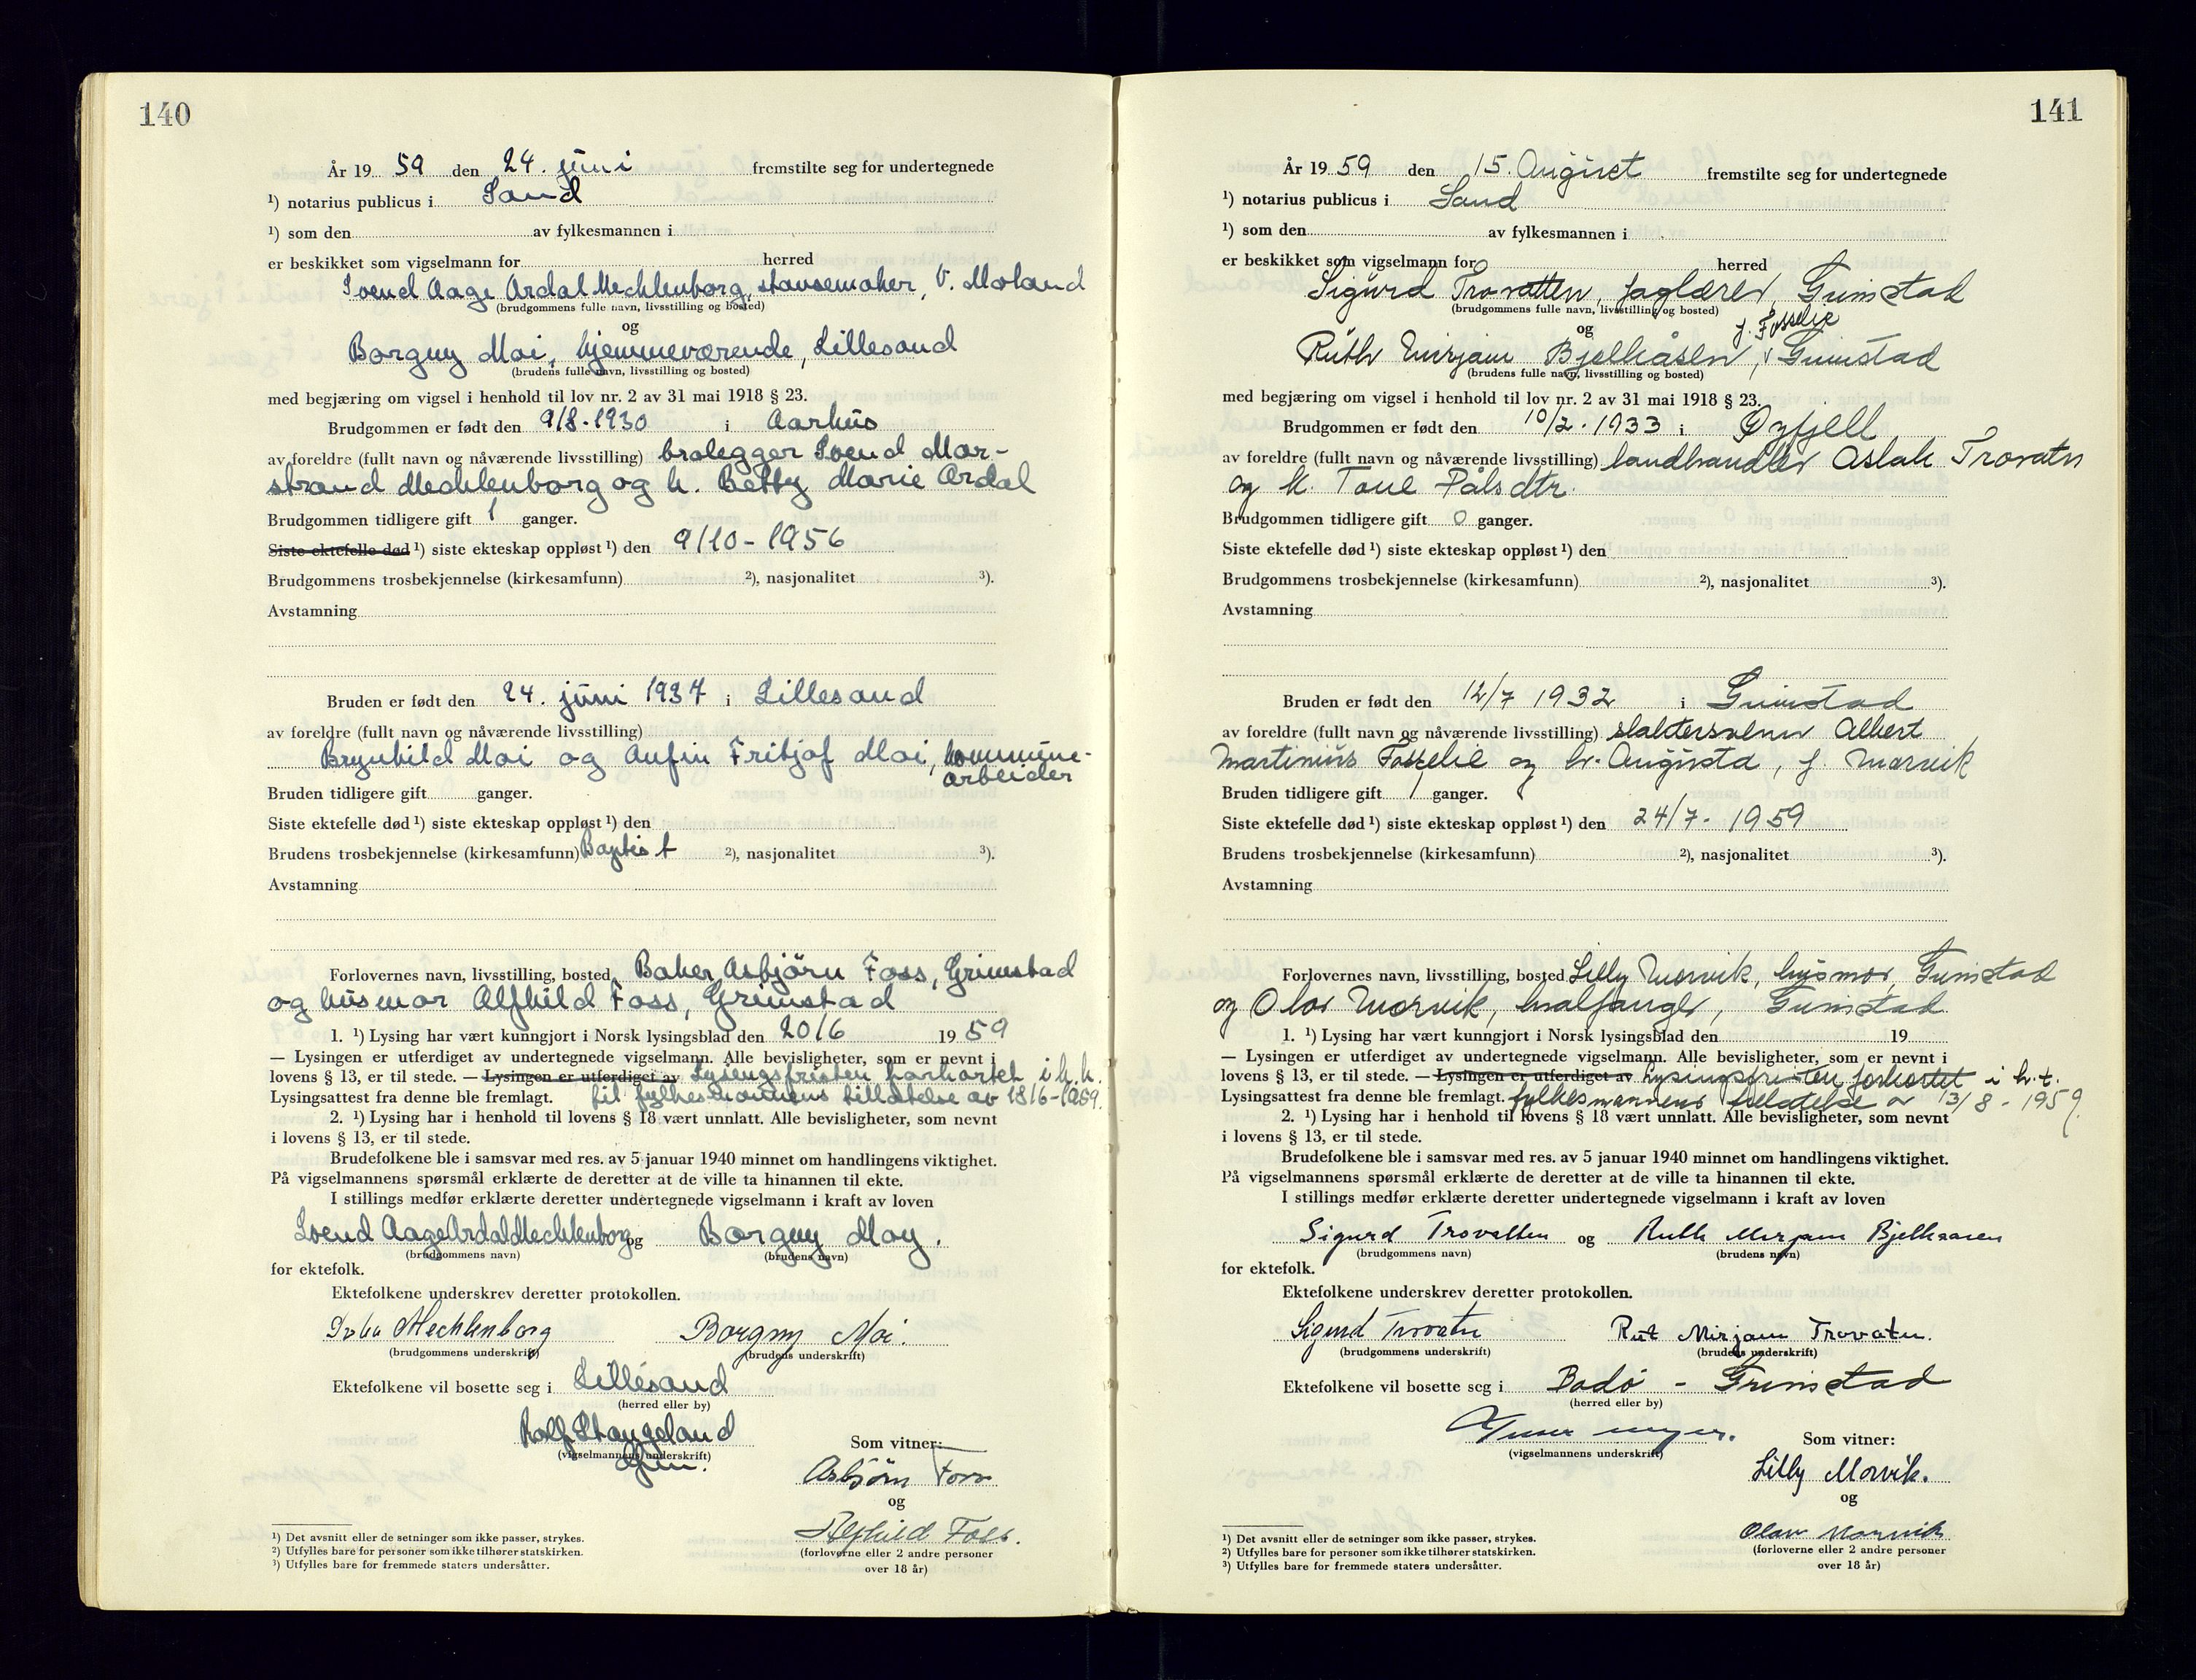 140
År 19 59 den 24. juni fremstilte seg for undertegnede
¹) notarius publicus i Sand
¹) som den av fylkesmannen i
er beskikket som vigselmann for herred
Svend Aage Ardal Mechlenborg, stansemaker, V. Moland
(brudgommens fulle navn, livsstilling og bosted)
og
Borgny Moi, hjemmeværende, Lillesand
(brudens fulle navn, livsstilling og bosted)
med begjæring om vigsel i henhold til lov nr. 2 av 31 mai 1918 § 23.
Brudgommen er født den 9/8-1930 i Aarhus
av foreldre (fullt navn og nåværende livsstilling) brolegger Svend Mar-
strand Mechlenborg og h. Betty Marie Ardal
Brudgommen tidligere gift 1 ganger.
Siste ektefelle død ¹) siste ekteskap oppløst ¹) den 9/10-1956
Brudgommens trosbekjennelse (kirkesamfunn) ²), nasjonalitet ³).
Avstamning
Bruden er født den 24. juni 1937 i Lillesand
av foreldre (fullt navn og nåværende livsstilling)
Brynhild Moi og Anfin Fritjof Moi, kommune-
arbeider
Bruden tidligere gift ganger.
Siste ektefelle død ¹) siste ekteskap oppløst ¹) den
Brudens trosbekjennelse (kirkesamfunn) Baptist ²), nasjonalitet ³).
Avstamning
Forlovernes navn, livsstilling, bosted Baker Asbjörn Foss, Grimstad
og husmor Alfhild Foss, Grimstad
1. ¹) Lysing har vært kunngjort i Norsk lysingsblad den 20/6 19 59
— Lysingen er utferdiget av undertegnede vigselmann. Alle bevisligheter, som er nevnt i
lovens § 13, er til stede. — Lysingen er utferdiget av Lysingsfristen forkortet i h.h.
Lysingsattest fra denne ble fremlagt. til fylkesmannens tillatelse av 18/6-1959.
2. ¹) Lysing har i henhold til lovens § 18 vært unnlatt. Alle bevisligheter, som nevnt
i lovens § 13, er til stede.
Brudefolkene ble i samsvar med res. av 5 januar 1940 minnet om handlingens viktighet.
På vigselmannens spørsmål erklærte de deretter at de ville ta hinannen til ekte.
I stillings medfør erklærte deretter undertegnede vigselmann i kraft av loven
Svend Aage Ardal Mechlenborg og Borgny Moy.
(brudgommens navn) (brudens navn)
for ektefolk.
Ektefolkene underskrev deretter protokollen.
Mechlenborg Borgny Moi.
(brudgommens underskrift) (brudens underskrift)
Ektefolkene vil bosette seg i Lillesand
(herred eller by)
Rolf Stangeland
(vigselmannens underskrift)
Som vitner:
Asbjörn Foss
og
Alfhild Foss.
(forloverne eller 2 andre personer
over 18 år)
¹) Det avsnitt eller de setninger som ikke passer, strykes.
²) Utfylles bare for personer som ikke tilhører statskirken.
³) Utfylles bare for fremmede staters undersåtter.
141
År 19 59 den 15. August fremstilte seg for undertegnede
¹) notarius publicus i Sand
¹) som den av fylkesmannen i
er beskikket som vigselmann for herred
Sigurd Trovatten, faglærer, Grimstad
(brudgommens fulle navn, livsstilling og bosted)
og f. Fosselie
Ruth Mirjam Bjelkåsen, Grimstad
(brudens fulle navn, livsstilling og bosted)
med begjæring om vigsel i henhold til lov nr. 2 av 31 mai 1918 § 23.
Brudgommen er født den 10/2-1933 i Øyfjell
av foreldre (fullt navn og nåværende livsstilling) landhandler Aslak Trovatn
og h. Tone Pålsdtr.
Brudgommen tidligere gift 0 ganger.
Siste ektefelle død ¹) siste ekteskap oppløst ¹) den
Brudgommens trosbekjennelse (kirkesamfunn) ²), nasjonalitet ³).
Avstamning
Bruden er født den 12/7 1932 i Grimstad
av foreldre (fullt navn og nåværende livsstilling) slaktersvenn Albert
Martinius Fosselie og h. Augusta, f. Morvik
Bruden tidligere gift 1 ganger.
Siste ektefelle død ¹) siste ekteskap oppløst ¹) den 24/7-1959
Brudens trosbekjennelse (kirkesamfunn) ²), nasjonalitet ³).
Avstamning
Forlovernes navn, livsstilling, bosted Lilly Morvik, husmor, Grimstad
og Olav Morvik, hvalfanger, Grimstad
1. ¹) Lysing har vært kunngjort i Norsk lysingsblad den 19
— Lysingen er utferdiget av undertegnede vigselmann. Alle bevisligheter, som er nevnt i
lovens § 13, er til stede. — Lysingen er utferdiget av Lysingsfristen forkortet i h.t.
Lysingsattest fra denne ble fremlagt. fylkesmannens tillatelse av 13/8-1959.
2. ¹) Lysing har i henhold til lovens § 18 vært unnlatt. Alle bevisligheter, som nevnt
i lovens § 13, er til stede.
Brudefolkene ble i samsvar med res. av 5 januar 1940 minnet om handlingens viktighet.
På vigselmannens spørsmål erklærte de deretter at de ville ta hinannen til ekte.
I stillings medfør erklærte deretter undertegnede vigselmann i kraft av loven
Sigurd Trovatten og Ruth Mirjam Bjelkaasen
(brudgommens navn) (brudens navn)
for ektefolk.
Ektefolkene underskrev deretter protokollen.
Sigurd Trovatn Rut Mirjam Trovatn.
(brudgommens underskrift) (brudens underskrift)
Ektefolkene vil bosette seg i Bodö - Grimstad
(herred eller by)
(vigselmannens underskrift)
Som vitner:
Lilly Morvik.
og
Olav Morvik
(forloverne eller 2 andre personer
over 18 år)
¹) Det avsnitt eller de setninger som ikke passer, strykes.
²) Utfylles bare for personer som ikke tilhører statskirken.
³) Utfylles bare for fremmede staters undersåtter.